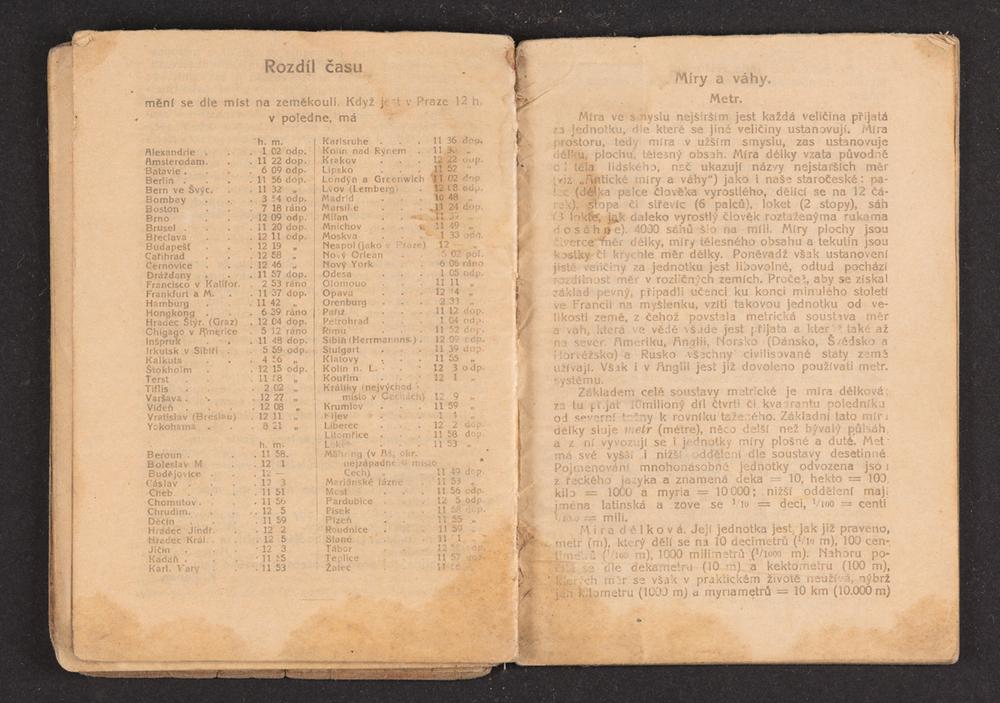 Rozdíl času
mění se dle míst na zeměkouli. Když jest v Praze 12 h.
v poledne, má
h. m.
Alexandrie . . . 1 02 odp.
Amsterodam. . . 11 22 dop.
Batavie . . . . 6 09 odp.
Berlín . . . . 11 56 dop.
Bern ve Švýc. . . 11 32 „
Bombay . . . 3 54 odp.
Boston . . . . 7 18 ráno
Brno . . . . 12 09 odp.
Brusel . . . . 11 20 dop.
Břeclava . . . 12 11 odp.
Budapešť . . . 12 19 „
Cařihrad . . . 12 58 „
Černovice . . . 12 46 „
Drážďany . . . 11 57 dop.
Francisco v Kalifor. . 2 53 ráno
Frankfurt a M. . . 11 37 dop.
Hamburg . . . 11 42 „
Hongkong . . . 6 39 ráno
Hradec Štyr. (Graz) . 12 04 dop.
Chigago v Americe . 5 12 ráno
Inšpruk . . . . 11 48 dop.
Irkutsk v Sibíři . . 5 59 odp.
Kalkuta . . . . 4 56 „
Štokholm . . . 12 15 odp.
Terst . . . . 11 58 „
Tiflis . . . . 2 02 „
Varšava . . . . 12 27 „
Vídeň . . . . 12 08 „
Vratislav (Breslau) . 12 11 „
Yokohama . . . 8 21 „
h. m.
Beroun . . . . 11 58.
Boleslav M . . . 12 1
Budějovice . . . 12 —
Čáslav . . . . 12 3
Cheb . . . . 11 51
Chomutov . . . 11 56
Chrudim. . . . 12 5
Děčín . . . . 11 59
Hradec Jindř. . . 12 2
Hradec Král . . . 12 5
Jičín . . . . 12 3
Kadaň . . . . 11 55
Karl. Vary . . . 11 53
Karlsruhe . . . 11 36 dop.
Kolín nad Rýnem . .
Krakov . . . . 12 22 odp.
Lipsko . . . . 11 52 „
Londýn a Greenwich 11 02 dop.
Lvov (Lemberg) . . 12 08 odp.
Madrid . . . . 10 48 „
Marsille . . . . 11 24 dop.
Milan . . . . 11 37 „
Mnichov . . . . 11 49 „
Moskva . . . . 1 33 odp.
Neapol (jako v Praze) 12 — „
Nový Orlean . . . 5 02 pol.
Nový York . . . 6 06 ráno
Odesa . . . . 1 05 odp.
Olomouc . . . 11 11 „
Opava . . . . 12 14 „
Orenburg . . . 2 33 „
Paříž . . . . 11 12 dop.
Petrohrad . . . 1 04 odp.
Římu . . . . 11 52 dop.
Sibiň (Herrmannns.) . 12 09 odp.
Stutgart . . . . 11 39 dop.
Klatovy . . . . 11 55 „
Kolín n. L. . . . 12 3 odp
Kouřim . . . . 12 1 „
Králíky (nejvýchod
místo v Čechách) 12 9 „
Krumlov . . . 11 59 „
Kijev . . . . 1 1 „
Liberec . . . . 12 2 dop
Litoměřice . . . 11 58 dop
11 53 „
(v Aš. okr.
nejzápadně ší místo
Čech) . . . . 11 49 dop.
Mariánské lázně . . 11 53 „
Most . . . . 11 56 odp.
Pardubice . . . 12 5 odp
Písek . . . . 11 58 dop
Plzeň . . . . 11 55 „
Roudnice . . . 11 59 „
Slané . . . . 11 1
Tábor . . . . 12
Teplice . . . . 11 57 dop
Žatec . . . .
Míry a váhy.
Metr.
Míra ve smyslu nejširším jest každá veličina přijatá
za jednotku, dle které se jiné veličiny ustanovují. Míra
prostoru, tedy míra v užším smyslu, zas ustanovuje
délku, plochu, tělesný obsah. Míra délky vzata původně
od těla lidského, neč ukazují názvy nejstarších měr
(viz „Antické míry a váhy“) jako i naše staročeské: pa-
lec (délka palce člověka vyrostlého, dělící se na 12 čá-
rek), stopa či střevíc (6 palců), loket (2 stopy), sáh
(3 lokte, jak daleko vyrostlý člověk roztaženýma rukama
dosáhne). 4000 sáhů šlo na míli. Míry plochy jsou
čtverce měr délky, míry tělesného obsahu a tekutin jsou
kostky či krychle měr délky. Poněvadž však ustanovení
jisté veličiny za jednotku jest libovolné, odtud pochází
rozdílnost měr v rozličných zemích. Pročež, aby se získal
základ pevný, připadli učenci ku konci minulého století
ve Francii na myšlenku, vzíti takovou jednotku od ve-
likosti země, z čehož povstala metrická soustava měr
a váh, která ve vědě všude jest přijata a kterou také až
na sever. Ameriku, Anglii, Norsko (Dánsko, Švédsko a
Norvéžsko) a Rusko všechny civilisované státy země
užívají. Však i v Anglii jest již dovoleno používati metr.
systému.
Základem celé soustavy metrické je míra délková:
za tu přijat 10milioný díl čtvrti či kvadrantu poledníku
od severní točny k rovníku taženého. Základní tato míra
délky sluje metr (métre), něco delší než bývalý půlsáh,
a z ní vyvozují se i jednotky míry plošné a duté. Metr
má své vyšší i nižší oddělení dle soustavy desetinné.
Pojmenování mnohonásobné jednotky odvozena jsou
z řeckého jazyka a znamená deka = 10, hekto = 100,
kilo = 1000 a myria = 10 000; nižší oddělení mají
jména latinská a zove se 1/10 = deci, 1/100 = centi
1/1000 = mili.
Míra délková. Její jednotka jest, jak již praveno,
metr (m), který dělí se na 10 decimetrů (1/10 m), 100 cen-
timetrů (1/100 m), 1000 milimetrů (1/1000 m). Nahoru po-
čítá se dle dekametru (10 m) a kektometru (100 m),
kterých měr se však v praktickém životě neužívá, nýbrž
jen kilometru (1000 m) a myriametrů = 10 km (10.000 m)